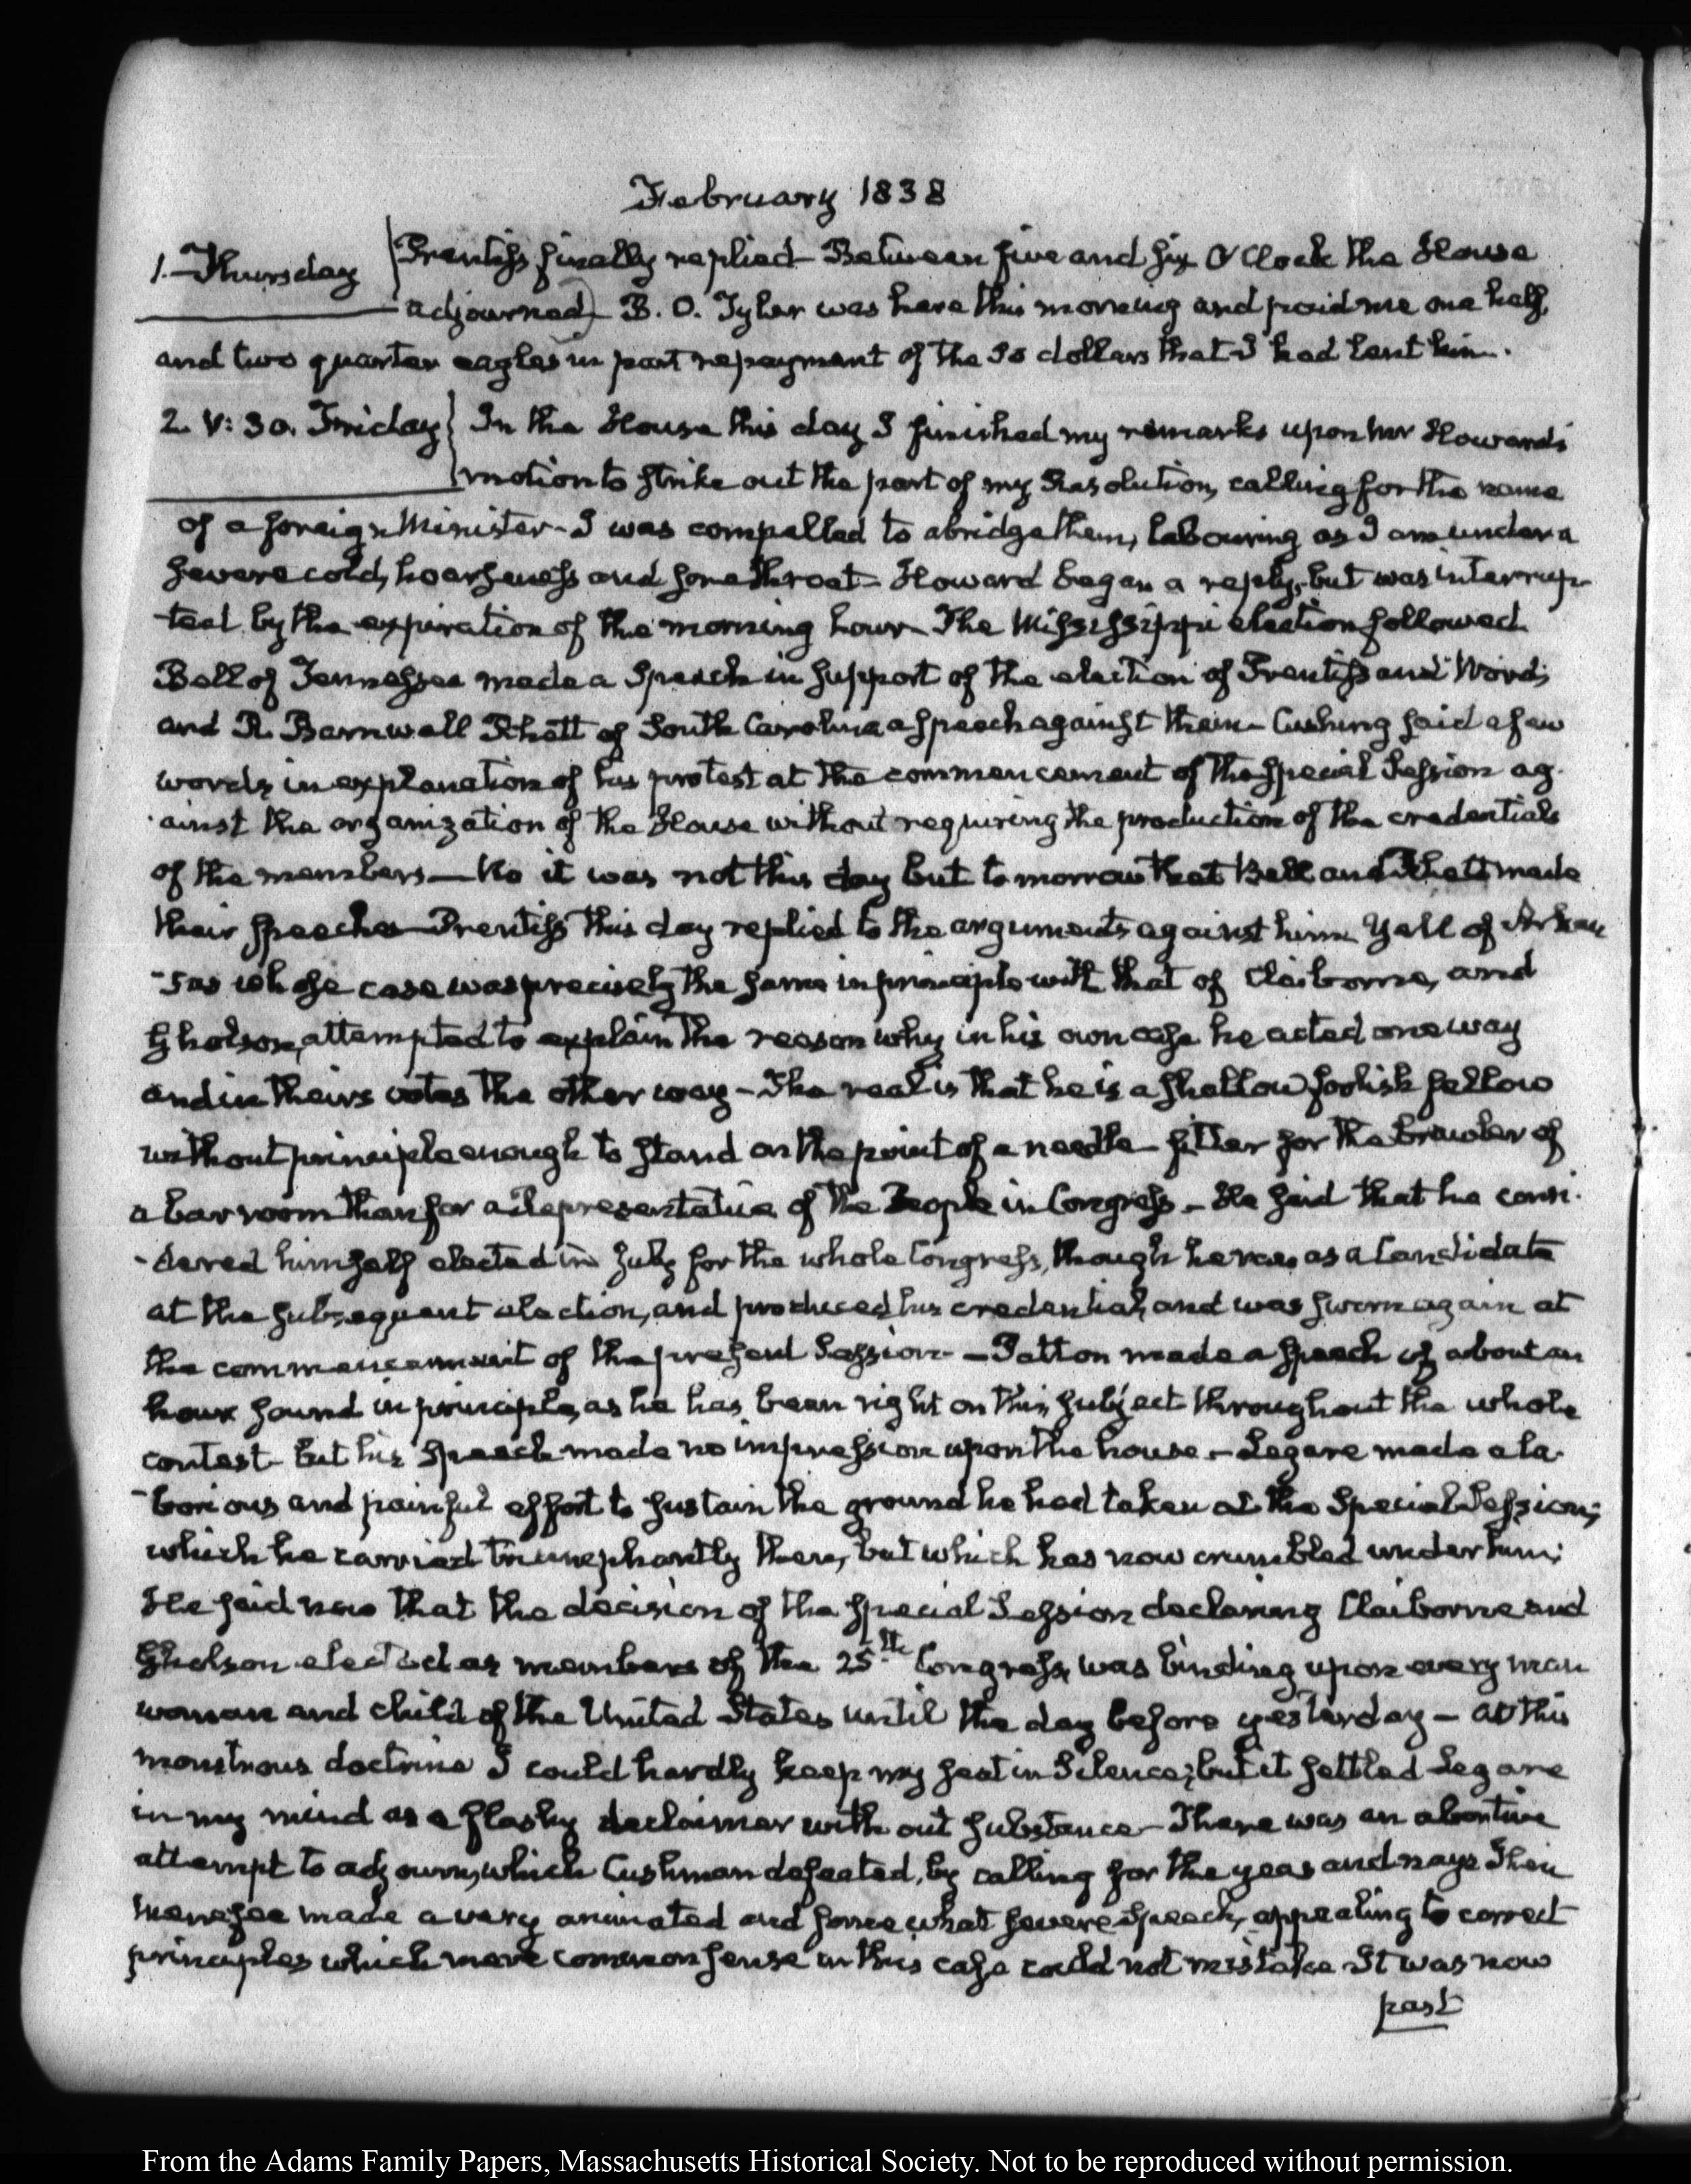 February 1838
1. Thursday
Prentiss finally replied— Between five and six O'Clock the House
adjourned) B. O. Tyler was here this morning and paid me one half,
and two quarter eagles in part repayment of the 30 dollars that I had lent him.
2. V: 30. Friday
In the House this day I finished my remarks upon Mr Howard's
motion to strike out the part of my Resolution, calling for the name
of a foreign Minister— I was compelled to abridge them, labouring as I am under a
severe cold, hoarseness and sore throat— Howard began a reply, but was interrup-
ted by the expiration of the morning hour— The Mississippi election followed
Bell of Tennessee made a Speech in support of the election of Prentiss and Word;
and R. Barnwell Rhett of South Carolina a speech against them— Cushing said a few
words in explanation of his protest at the commencement of the special Session ag-
ainst the organization of the House without requiring the production of the credentials
of the members— No it was not this day but to morrow that Bell and Rhett made
their speeches— Prentiss this day replied to the arguments against him Yell of Arkan
-sas whose case was precisely the same in principle with that of Claiborne, and
Gholson, attempted to explain the reason why in his own case he acted one way
and in theirs votes the other way— The real is that he is a shallow foolish fellow
without principle enough to stand on the point of a needle— fitter for the brawler of
a bar room than for a Representative of the People in Congress— He said that he consi-
-dered himself elected in July for the whole Congress, though he was as a Candidate
at the subsequent election, and produced his credentials, and was sworn again at
the commencement of the present Session— Patton made a speech of about an
hour sound in principle, as he has been right on this subject throughout the whole
contest— But his Speech made no impression upon the house— Legare made a la-
-borious and painful effort to sustain the ground he had taken at the Special Session;
which he carried triumphantly then, but which has now crumbled under him;
He said now that the decision of the special Session declaring Claiborne and
Gholson elected as members of the 25th. Congress, was binding upon every man
woman and child of the United States until the day before yesterday— At this
monstrous doctrine I could hardly keep my seat in Silence; but it settled Legare
in my mind as a flashy declaimer without substance— There was an abortive
attempt to adjourn, which Cushman defeated, by calling for the yeas and nays Then
Menefee made a very animated and somewhat severe speech, appealing to correct
principles which mere common sense in this case could not mistake It was now
past
From the Adams Family Papers, Massachusetts Historical Society. Not to be reproduced without permission.